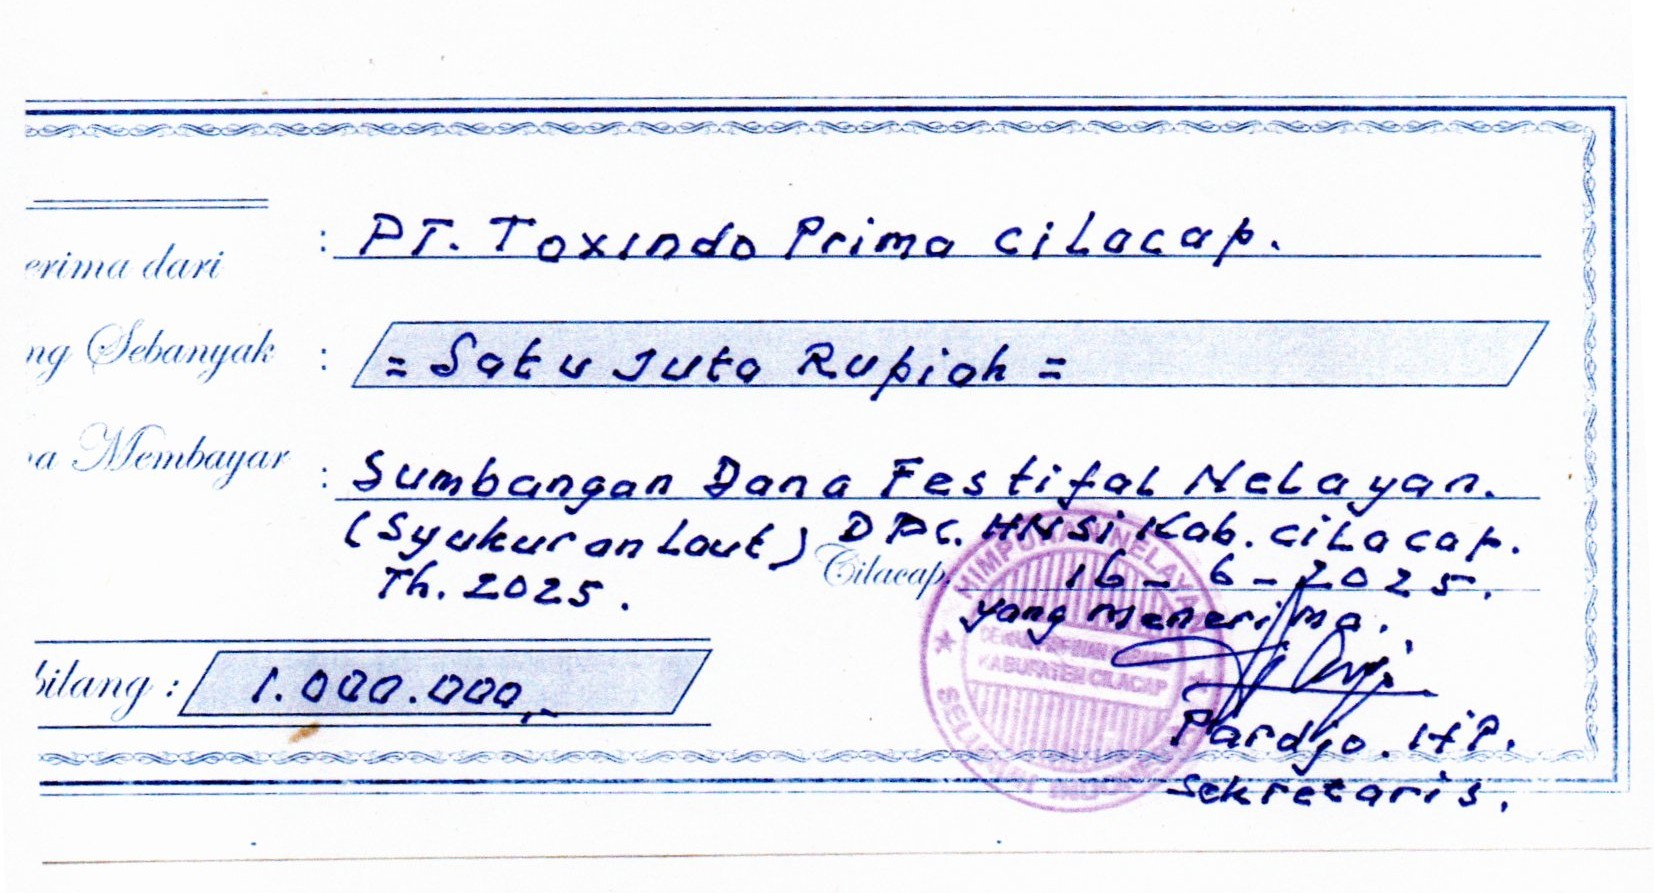 erima dari : PT. Toxindo Prima Cilacap.
ng Sebanyak : = Satu Juta Rupiah =
a Membayar : Sumbangan Dana Festifal Nelayan.
(Syukuran Laut) DPC. HNSi Kab. Cilacap.
Th. 2025.
Cilacap, 16 - 6 - 2025.
yang menerima.
bilang : 1.000.000,-
HIMPUNAN NELAYAN
SELURUH INDONESIA
DEWAN PIMPINAN CABANG
KABUPATEN CILACAP
Pardjo. HP.
Sekretaris.